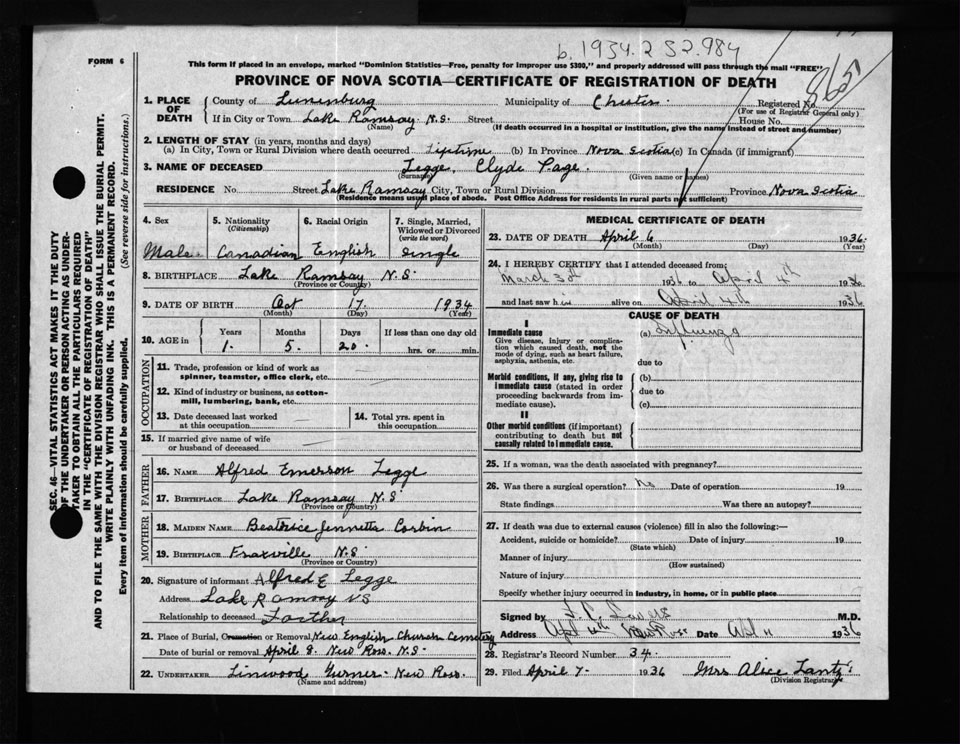 b. 1934.2 S2.984
865
FORM 6
This form if placed in an envelope, marked "Dominion Statistics—Free, penalty for improper use $300," and properly addressed will pass through the mail "FREE"
PROVINCE OF NOVA SCOTIA—CERTIFICATE OF REGISTRATION OF DEATH
SEC. 46—VITAL STATISTICS ACT MAKES IT THE DUTY
OF THE UNDERTAKER OR PERSON ACTING AS UNDER-
TAKER TO OBTAIN ALL THE PARTICULARS REQUIRED
IN THE "CERTIFICATE OF REGISTRATION OF DEATH"
AND TO FILE THE SAME WITH THE DIVISION REGISTRAR WHO SHALL ISSUE THE BURIAL PERMIT.
WRITE PLAINLY WITH UNFADING INK. THIS IS A PERMANENT RECORD.
Every item of information should be carefully supplied. (See reverse side for instructions.)
1. PLACE OF DEATH County of Lunenburg Municipality of Chester Registered No.
(For use of Registrar General only)
If in City or Town Lake Ramsay N.S. Street House No.
(Name) (If death occurred in a hospital or institution, give the name instead of street and number)
2. LENGTH OF STAY (in years, months and days)
(a) In City, Town or Rural Division where death occurred Lifetime (b) In Province Nova Scotia (c) In Canada (if immigrant)
3. NAME OF DECEASED Legge, Clyde Page.
(Surname) (Given name or names)
RESIDENCE No. Street Lake Ramsay City, Town or Rural Division Province Nova Scotia
(Residence means usual place of abode. Post Office Address for residents in rural parts not sufficient)
4. Sex 5. Nationality (Citizenship) 6. Racial Origin 7. Single, Married, Widowed or Divorced (write the word)
Male Canadian English Single
8. BIRTHPLACE Lake Ramsay N.S.
(Province or Country)
9. DATE OF BIRTH Oct 17 1934
(Month) (Day) (Year)
10. AGE in Years Months Days If less than one day old
1. 5. 20. hrs. or min.
OCCUPATION
11. Trade, profession or kind of work as
spinner, teamster, office clerk, etc.
12. Kind of industry or business, as cotton-
mill, lumbering, bank, etc.
13. Date deceased last worked
at this occupation
14. Total yrs. spent in
this occupation
15. If married give name of wife
or husband of deceased
FATHER
16. NAME Alfred Emerson Legge
17. BIRTHPLACE Lake Ramsay N.S
(Province or Country)
MOTHER
18. MAIDEN NAME Beatrice Jennetta Corbin
19. BIRTHPLACE Fraxville N.S.
(Province or Country)
20. Signature of informant Alfred E Legge
Address Lake Ramsay NS
Relationship to deceased Farther
21. Place of Burial, Cremation or Removal New English Church Cemetery
Date of burial or removal April 8. New Ross. N.S.
22. UNDERTAKER Linwood Turner - New Ross.
(Name and address)
MEDICAL CERTIFICATE OF DEATH
23. DATE OF DEATH April 6 1936.
(Month) (Day) (Year)
24. I HEREBY CERTIFY that I attended deceased from
March 1936 to April 4th 1936
and last saw h alive on April 4th 1936
CAUSE OF DEATH
I
Immediate cause
Give disease, injury or complica-
tion which caused death, not the
mode of dying, such as heart failure,
asphyxia, asthenia, etc.
(a) Influenza
due to
Morbid conditions, if any, giving rise to
immediate cause (stated in order
proceeding backwards from im-
mediate cause).
(b)
due to
(c)
II
Other morbid conditions (if important)
contributing to death but not
causally related to immediate cause.
25. If a woman, was the death associated with pregnancy?
26. Was there a surgical operation? No Date of operation 19
State findings Was there an autopsy?
27. If death was due to external causes (violence) fill in also the following:—
Accident, suicide or homicide? Date of injury 19
(State which)
Manner of injury
(How sustained)
Nature of injury
Specify whether injury occurred in industry, in home, or in public place
Signed by M.D.
Address New Ross Date 1936
28. Registrar's Record Number 34.
29. Filed April 7 1936 Mrs Alice Lantz
(Division Registrar)